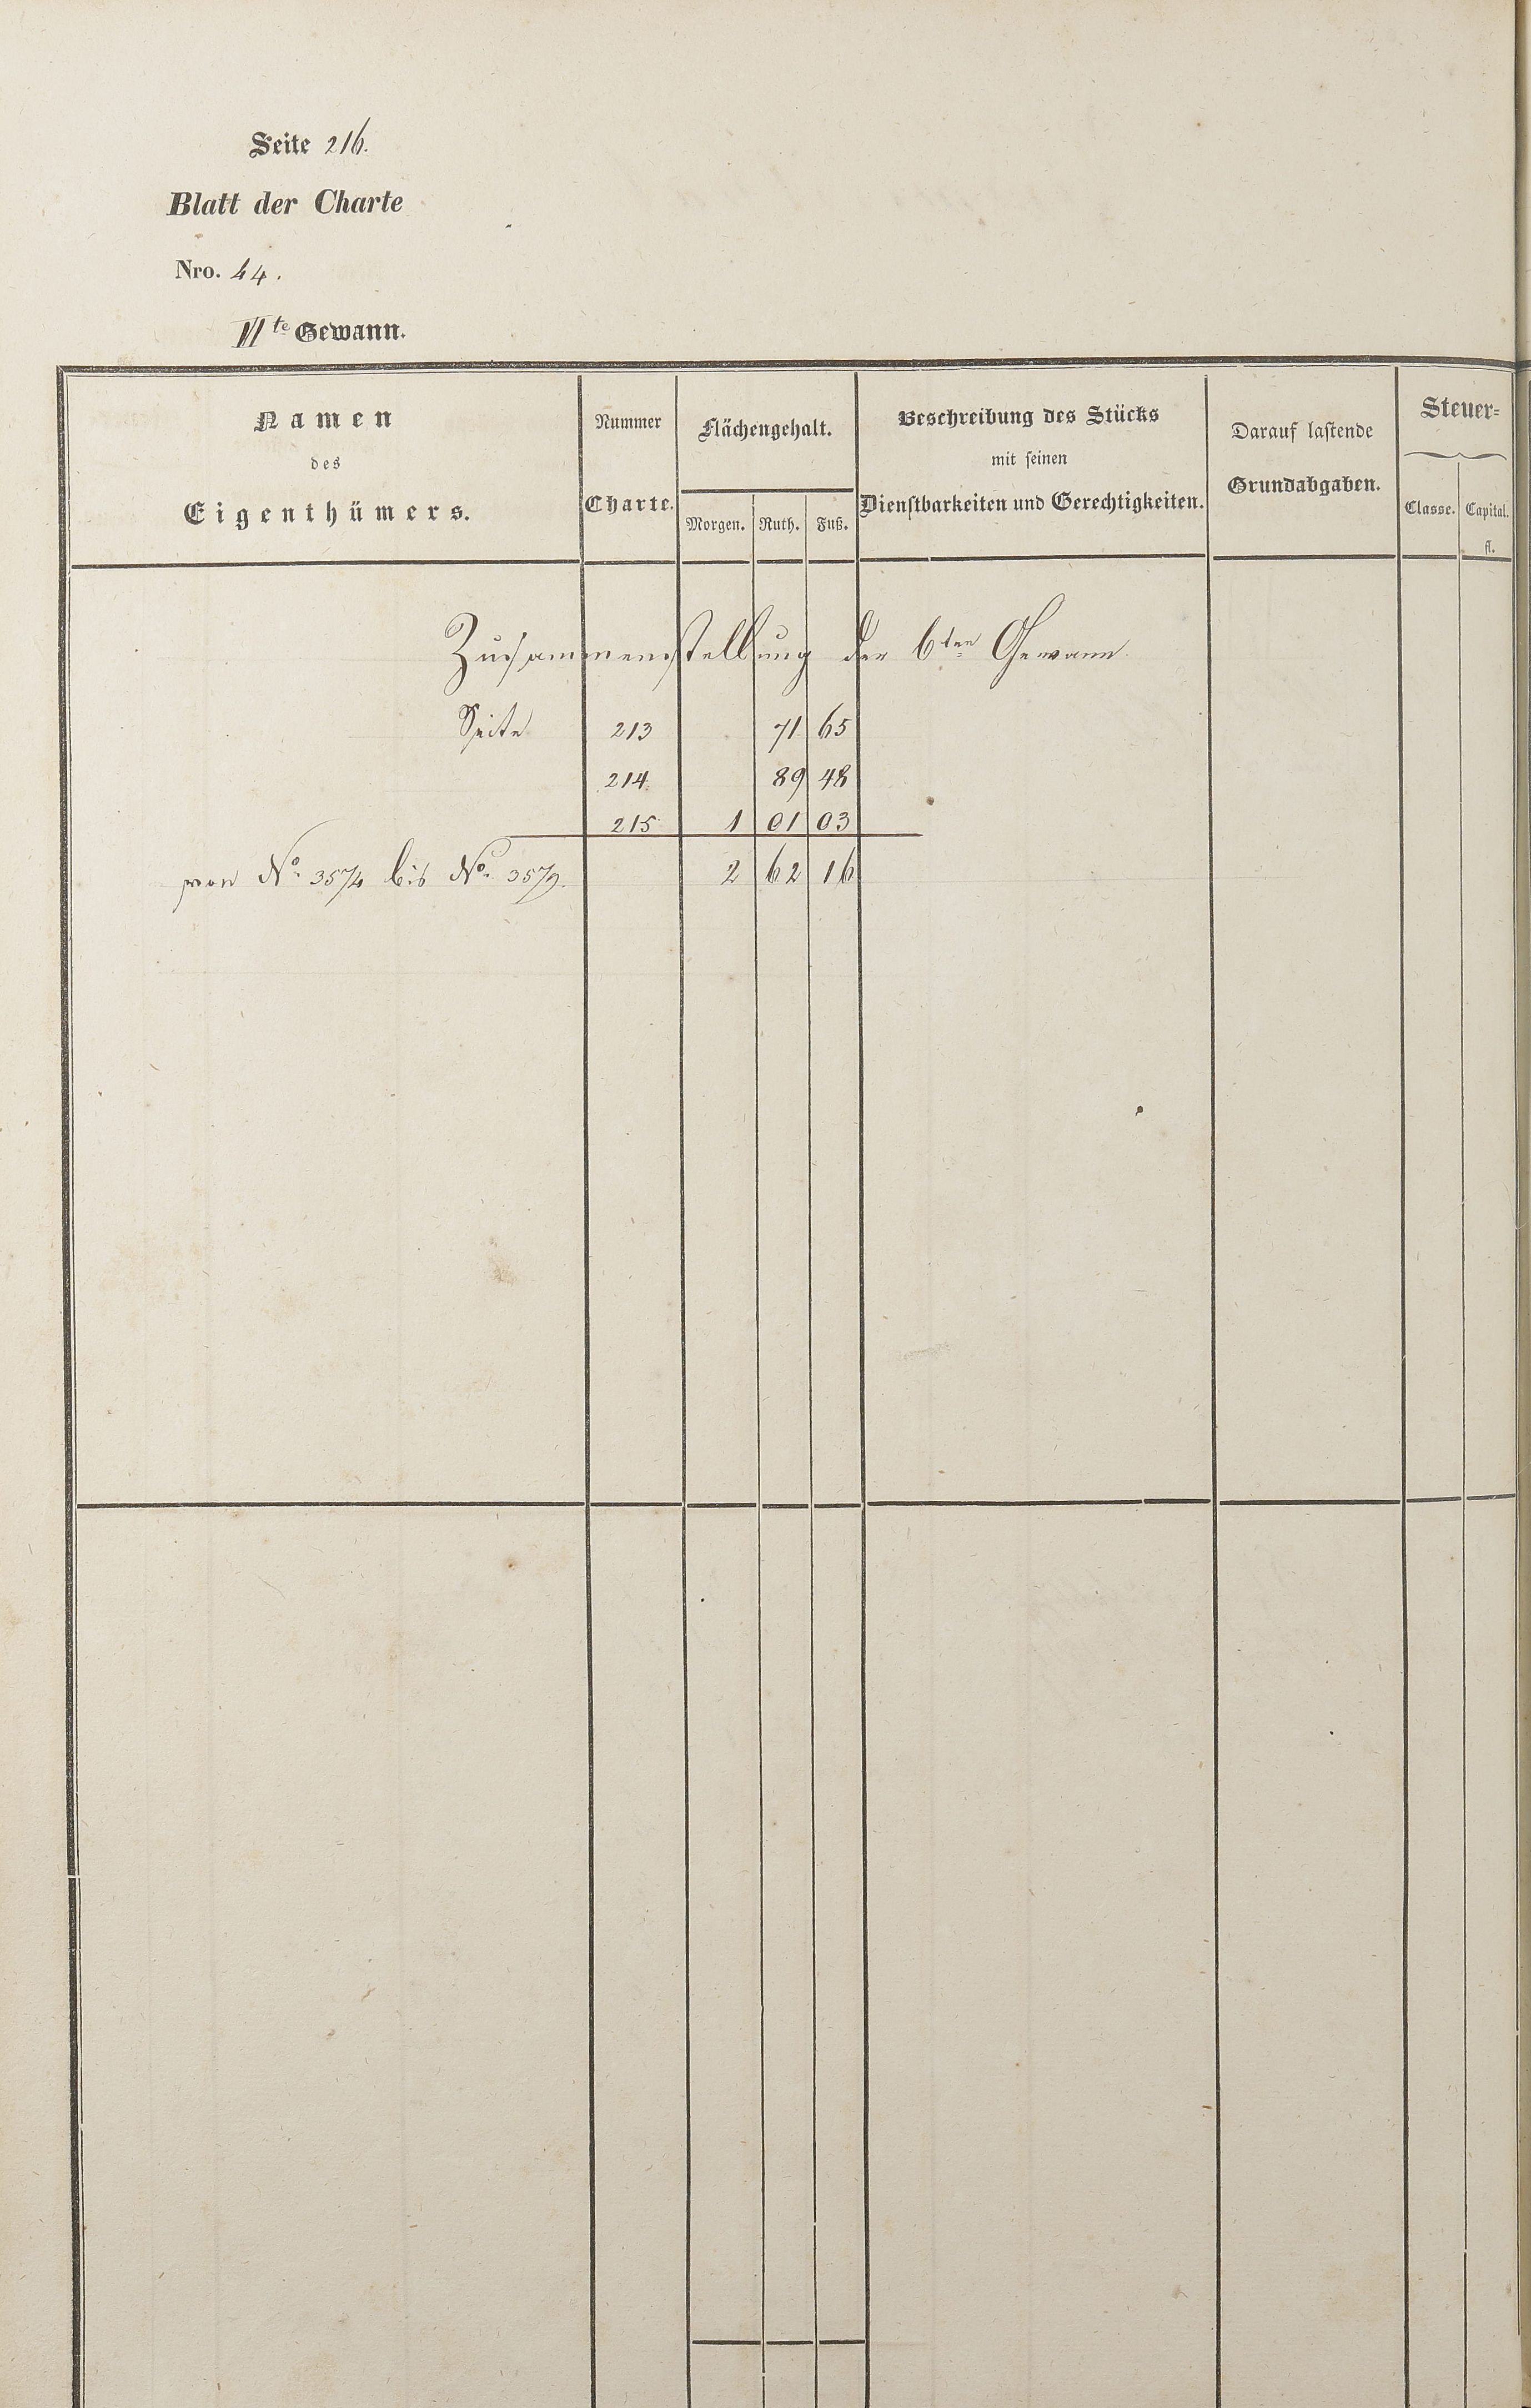 Seite 216.
Blatt der Charte
Nro. 44.
VIte Gewann.
Namen des Eigenthümers.
Nummer Charte.
Flächengehalt.
Morgen. Ruth. Fuß.
Beschreibung des Stücks
mit seinen
Dienstbarkeiten und Gerechtigkeiten.
Darauf lastende
Grundabgaben.
Steuer=
Classe. Capital.
fl.
Zusammenstellung der 6ten Gewann.
Seite 213 71 65
214. 89 48
215 1 01 03
von No. 3574 bis No. 3579. 2 62 16